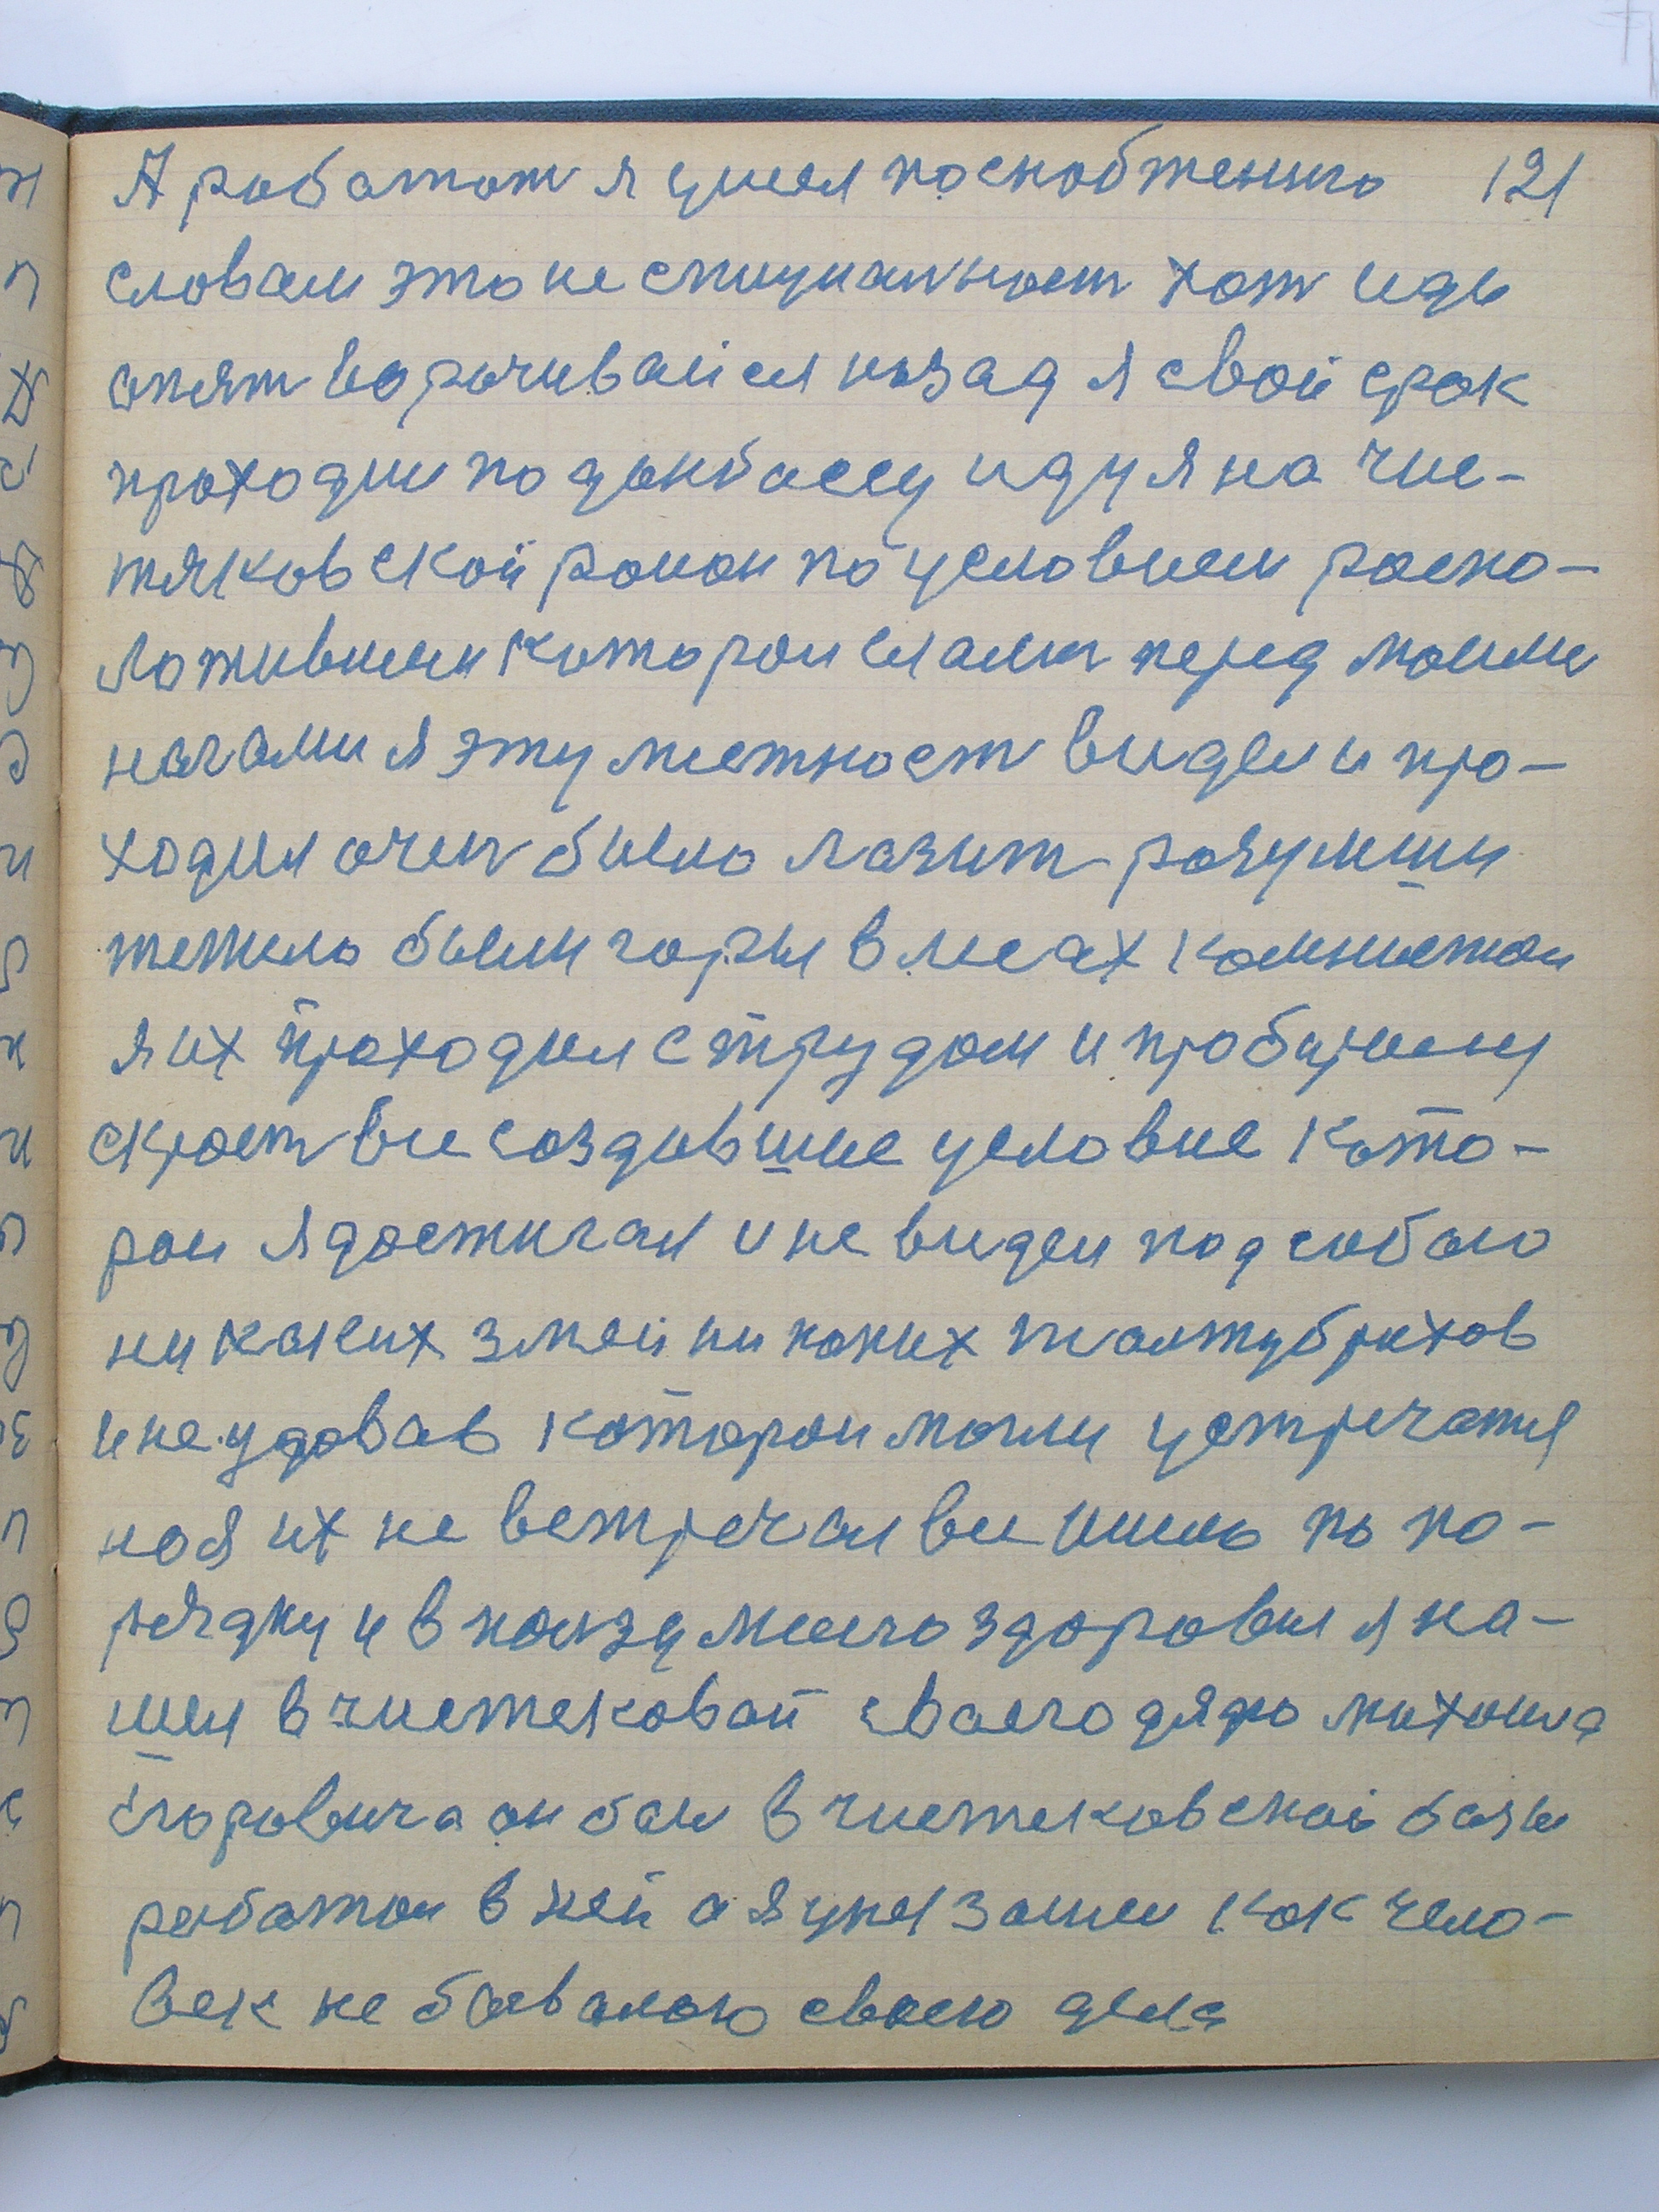 А работат я умел поснобжению 121
словам это не спициальност хот иды
опят ворочивайся назад я свой срок
проходил по донбассу иду я на чис-
тяковской район по условием распо-
ложившем которои слались перед моими
ногами я эту местност видел и про-
ходил очен было лазит разумиши
тежело были горы в лесах комнистои
я их проходил с трудом и пробирному
скрост все создавшие условие кото-
рои я достигал и не видел под собою
ни каких змей ни каких
и не удовав которои могли устречатся
но я их не встречал все ишло по по-
рядку и в ползу моего здоровья я на-
шел в чистековай своего дядю михоила
егоровича он был в чистековской базы
работои в ней а я укы зашел как чело-
век не бывалою своею дела